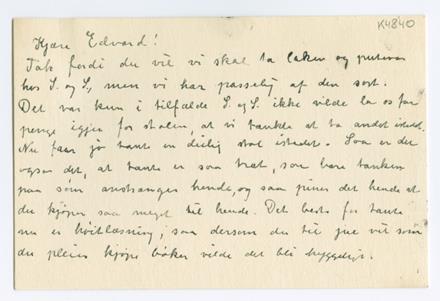 K4840
Kjære Edvard!
Tak fordi du vil vi skal ta laken og putevar
hos S. og S., men vi har passelig af den sort.
Det var kun i tilfælde S. og S. ikke vilde la os faa
penge igjen for stolen, at vi tænkte at ta andet istedet.
Nu faar jo tante en deilig stol istedet. Saa er det
ogsaa det, at tante er saa træt, som bare tanken
paa som anstrænger hende, og saa piner det hende at
du kjøper saa meget til hende. Det beste for tante
nu er høitlæsning, saa dersom du til jul vil som
du pleier kjøpe bøker vilde det bli hyggeligt.